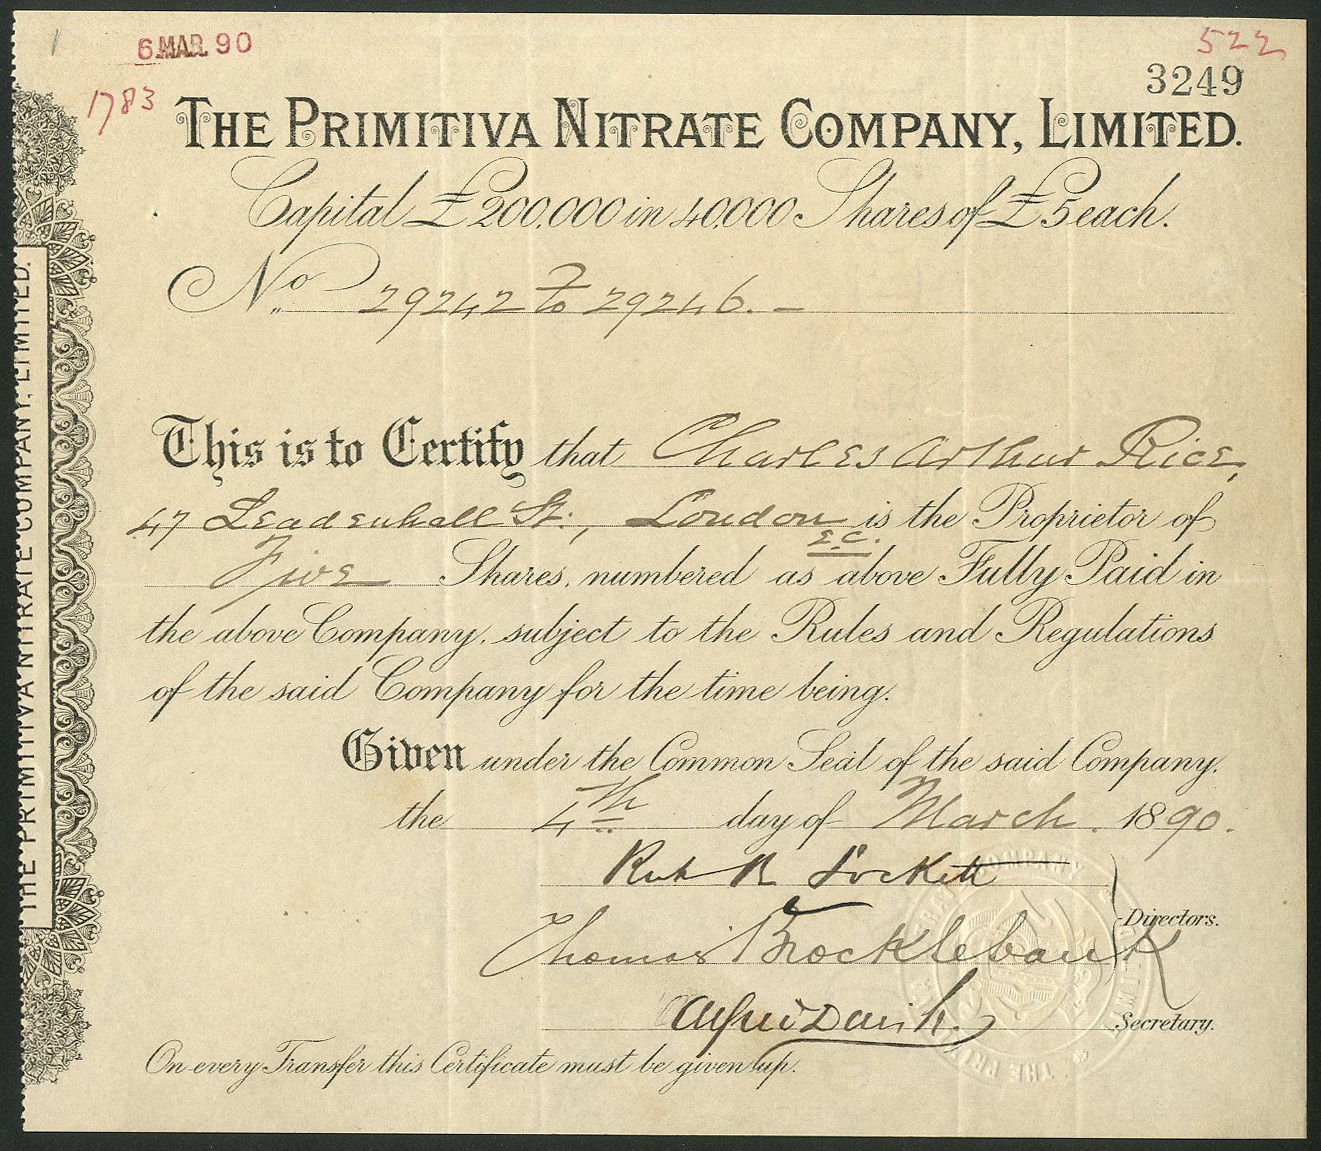 6 MAR. 90
522
3249
1783
THE PRIMITIVA NITRATE COMPANY, LIMITED.
Capital £200,000 in 40,000 Shares of £5 each.
No. 29242 to 29246.
This is to Certify that Charles Arthur Rice,
47 Leadenhall St., London E.C. is the Proprietor of
Five Shares, numbered as above Fully Paid in
the above Company, subject to the Rules and Regulations
of the said Company for the time being.
Given under the Common Seal of the said Company.
the 4th day of March. 1890.
R Lockett
Directors.
Thomas Brocklebank
Secretary.
On every Transfer this Certificate must be given up.
THE PRIMITIVA NITRATE COMPANY, LIMITED.